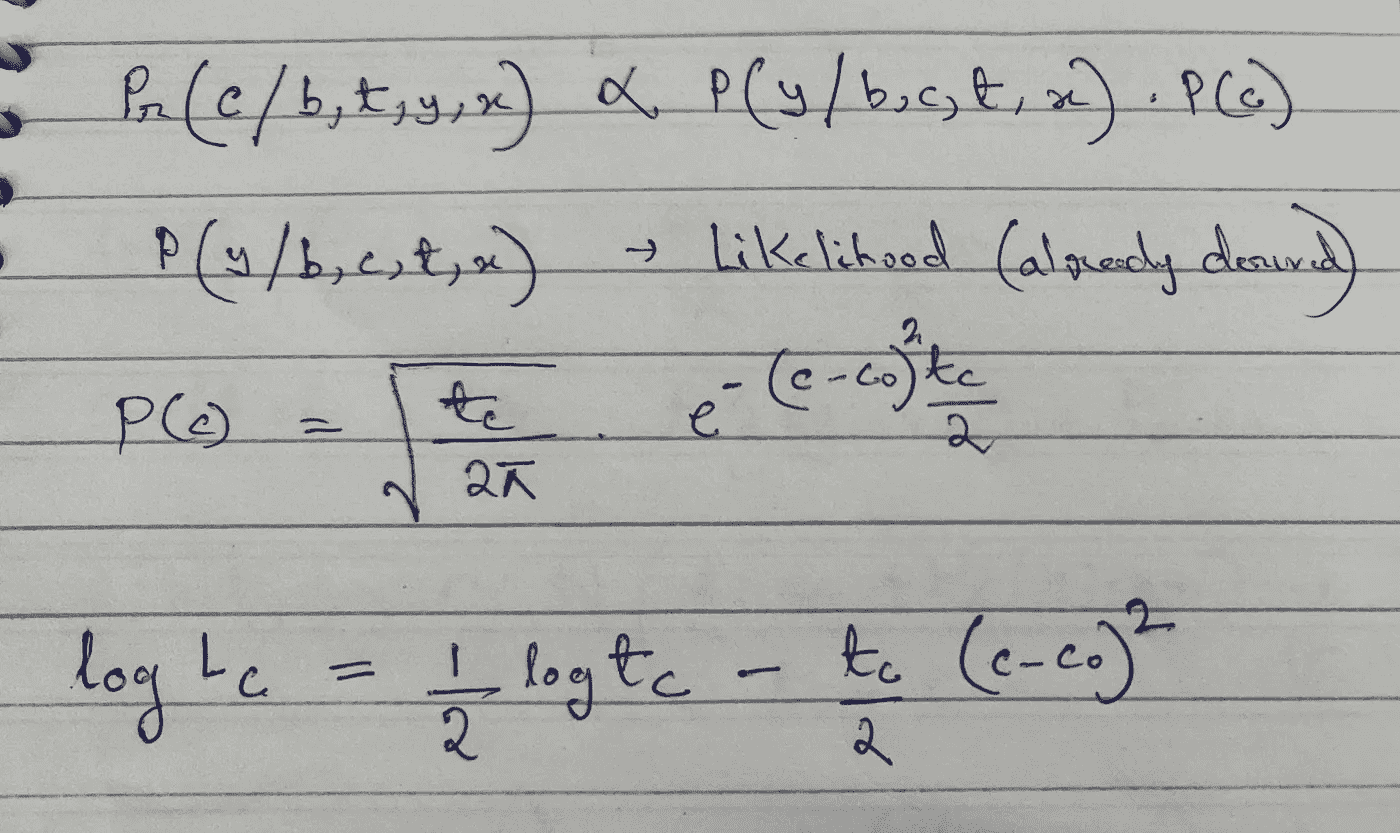 Pr(c/b,t,y,x) ∝ P(y/b,c,t,x) . P(c)
P(y/b,c,t,x) → Likelihood (already derived)
P(c) = √(tc/2π) . e^-(c-c0)^2 tc/2
log Lc = 1/2 log tc - tc/2 (c-c0)^2